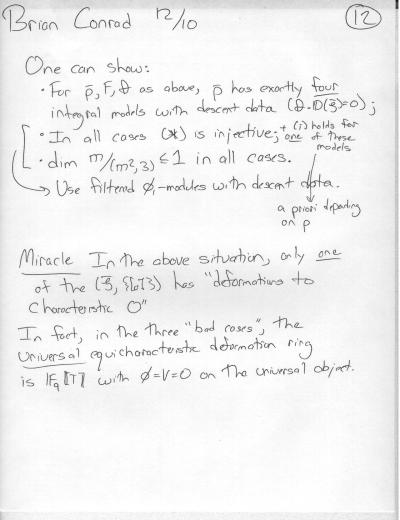 Brian Conrad 12/10
12
One can show:
• For ρ̄, F, D as above, ρ̄ has exactly four
integral models with descent data (D·ID(ξ)=0);
• In all cases (*) is injective; + (i) holds for one of these models
• dim m/(m²,3) ≤ 1 in all cases.
Use filtered φ₁-modules with descent data.
a priori depending
on ρ
Miracle In the above situation, only one
of the (ξ, {[u]}) has "deformations to
characteristic 0"
In fact, in the three "bad cases", the
universal equicharacteristic deformation ring
is 𝔽q⟦T⟧ with φ=V=0 on the universal object.